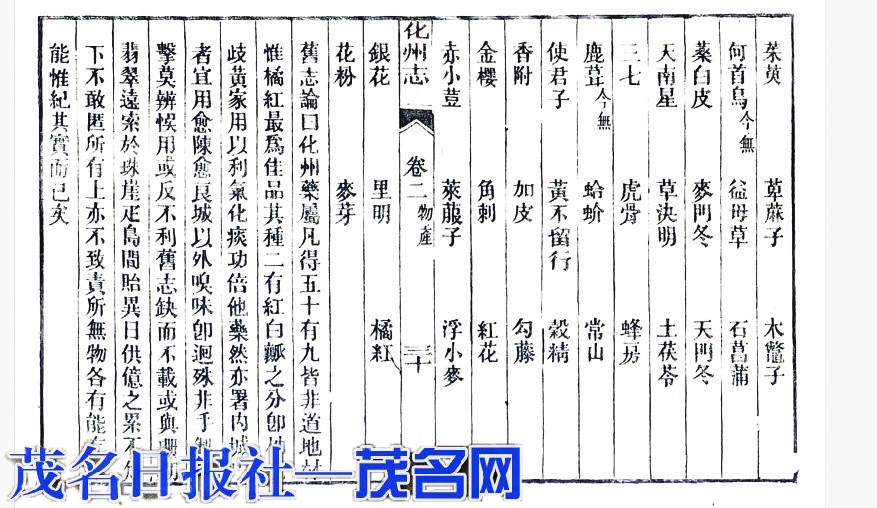 茱萸　萆蔴子　木鼈子
何首烏今無　益母草　石菖蒲
白皮　麥門冬　天門冬
天南星　草決明　土茯苓
三七　虎骨　蜂房
鹿茸今無　蛤蚧　常山
使君子　黃不留行　穀精
香附　加皮　勾藤
金櫻　角刺　紅花
赤小荳　萊菔子　浮小麥
化州志　卷二　物產　三十
銀花　里明　橘紅
花粉　麥芽
舊志論曰化州藥屬凡得五十有九皆非道地
惟橘紅最爲佳品其種二有紅白瓤之分卽
歧黃家用以利氣化痰功倍他藥然亦署內城
者宜用愈陳愈良城以外嗅味卽迥殊非手製
擊莫辨悞用或反不利舊志缺而不載或與珊
翡翠遠索於珠崖疋島間貽異日供億之累不
下不敢匿所有上亦不致責所無物各有能
能惟紀其實而已矣
茂名日报社—茂名网